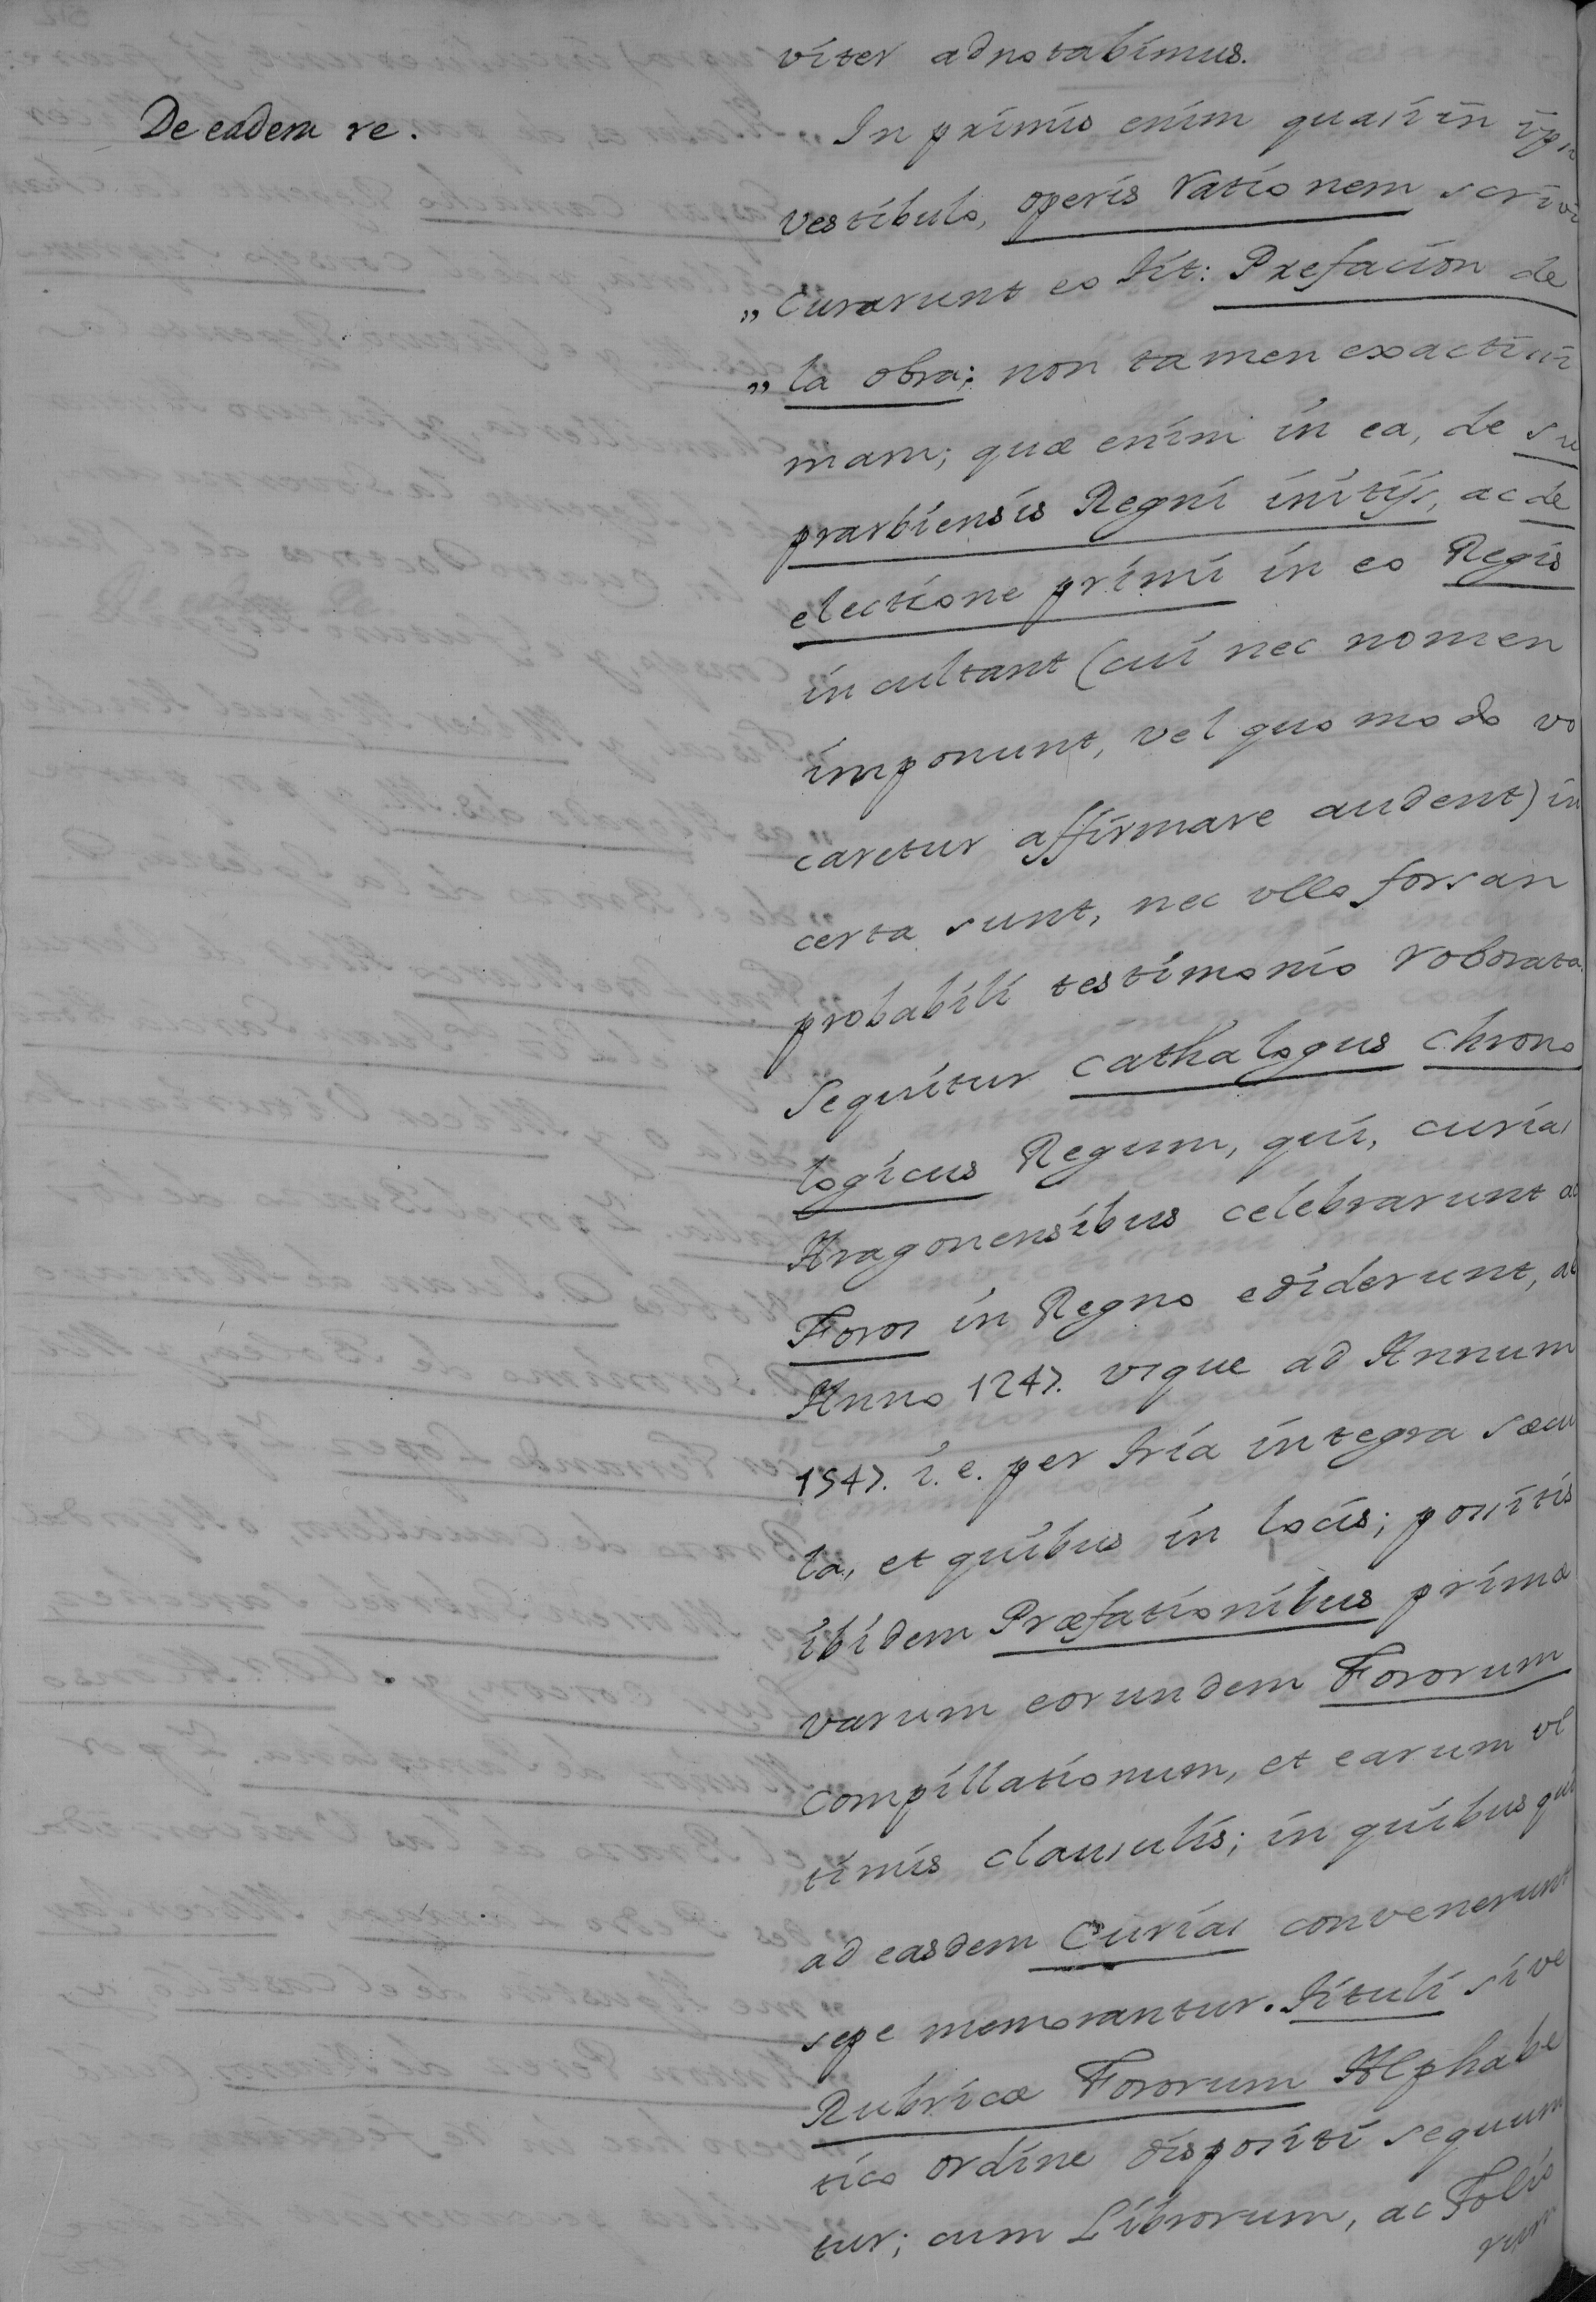 viter adnotabimus.
De eadem re.
In primis enim quasi in ip
vestibulo, operis rationem scrivi
„ curarunt eo tit: Prefacion de
„ la obra; non tamen exactiss
mam; quæ enim in ea, de su
prarbiensis Regni initijs, ac de
electione primi in eo Regis
incultant (cui nec nomen
imponunt, vel quomodo vo
caretur affirmare audent) in
certa sunt, nec vllo forsan
probabili testimonio roborata.
Sequitur cathalogus chrono
logicus Regum, qui, curias
Aragonensibus celebrarunt ac
Foros in Regno ediderunt, ab
Anno 1247. vsque ad Annum
1547. i. e. per tria integra sæcu
la, et quibus in locis; positis
ibidem Præfationibus prima
varum eorundem Fororum
compillationum, et earum vl
timis clausulis; in quibus qui
ad easdem Curias convenerunt
sepe memorantur. Tituli sive
Rubricæ Fororum Alphabe
tico ordine dispositi sequun
tur; cum Librorum, ac Folio
rum